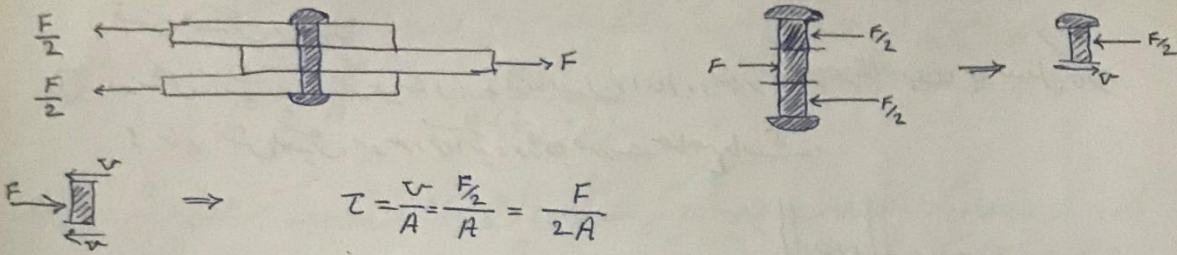 F/2
F
F/2
F/2
F
F/2
⇒
F/2
v
F
v
v
⇒ τ = v/A = F/2/A = F/2A